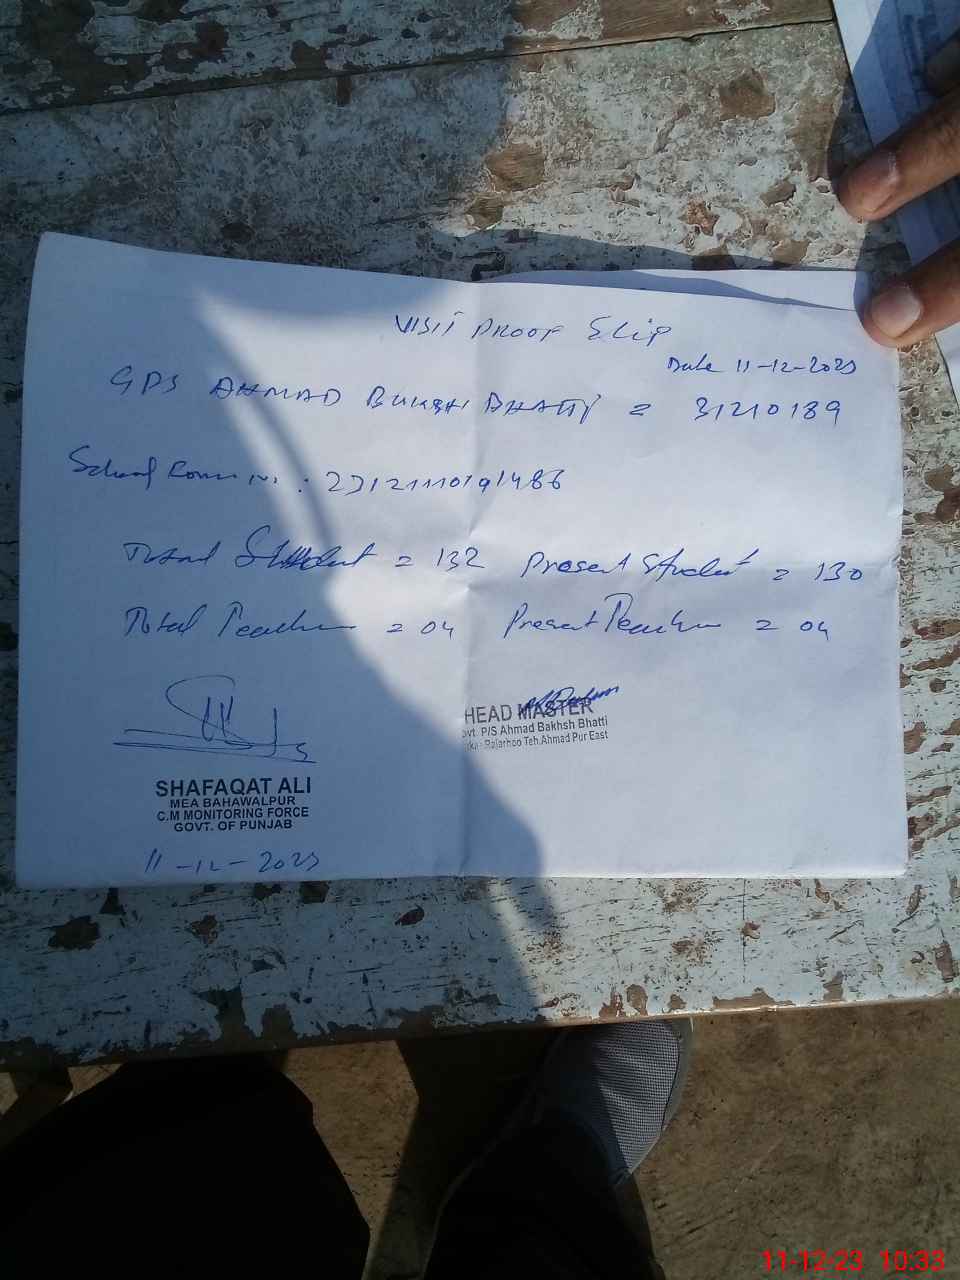 VISIT PROOF SLIP
Date 11-12-2023
GPS AHMAD BUKSH BHATTI = 31210189
School :
Total Student = 132 Present Student = 130
Total Teacher = 04 Present Teacher = 04
HEAD MASTER
ovt. P/S Ahmad Bakhsh Bhatti
Rajarhoo Teh.Ahmad Pur East
SHAFAQAT ALI
MEA BAHAWALPUR
C.M MONITORING FORCE
GOVT. OF PUNJAB
11-12-2023
11-12-23 10:33